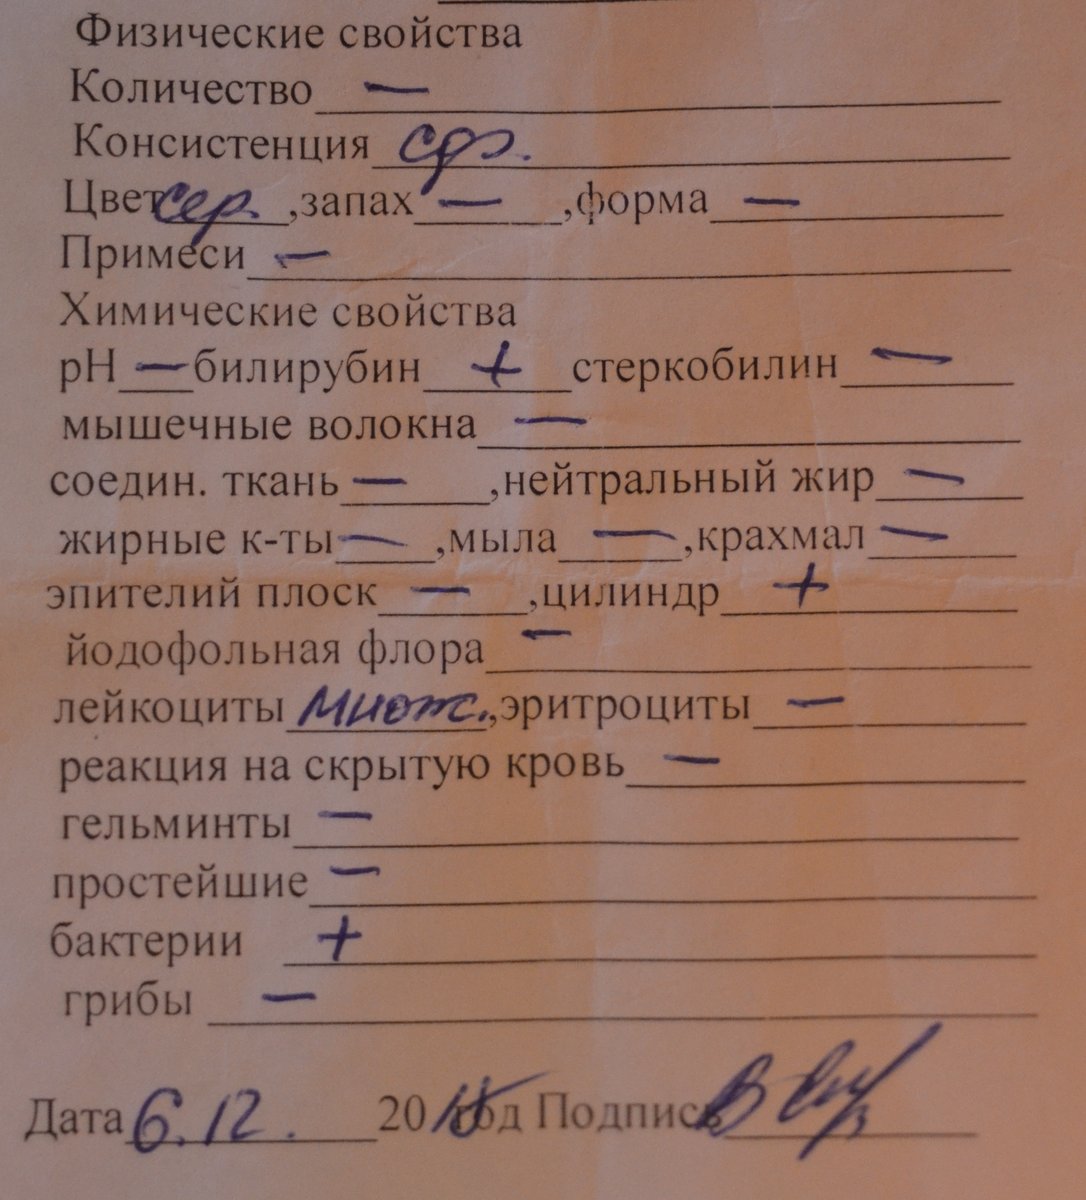 Физические свойства
Количество —
Консистенция сф.
Цвет сер. ,запах — ,форма —
Примеси —
Химические свойства
рН — билирубин + стеркобилин —
мышечные волокна —
соедин. ткань — ,нейтральный жир —
жирные к-ты — ,мыла — ,крахмал —
эпителий плоск — ,цилиндр +
йодофольная флора —
лейкоциты множ. ,эритроциты —
реакция на скрытую кровь —
гельминты —
простейшие —
бактерии +
грибы —
Дата 6.12. 20 год Подпись